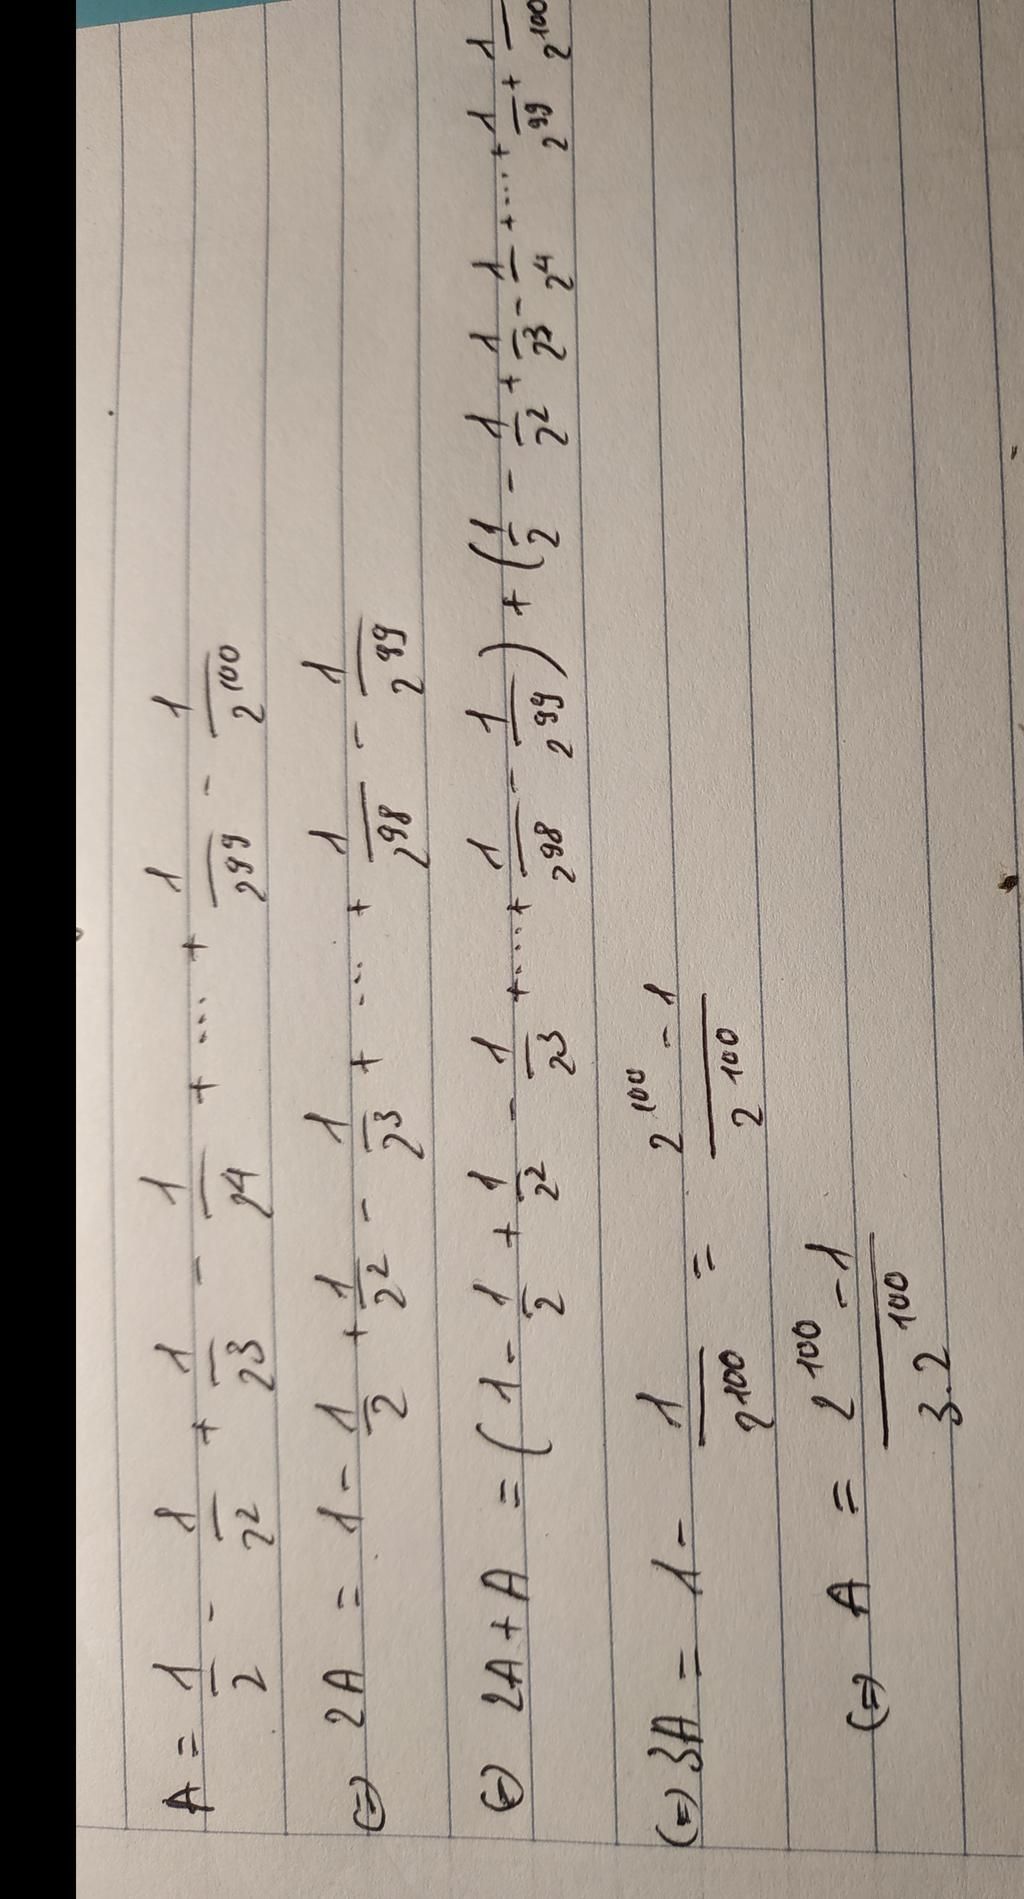 A = 1/2 - 1/2^2 + 1/2^3 - 1/2^4 + ... + 1/2^99 - 1/2^100
(=) 2A = 1 - 1/2 + 1/2^2 - 1/2^3 + ... + 1/2^98 - 1/2^99
(=) 2A + A = (1 - 1/2 + 1/2^2 - 1/2^3 + .... + 1/2^98 - 1/2^99) + (1/2 - 1/2^2 + 1/2^3 - 1/2^4 + ... + 1/2^99 + 1/2^100
(=) 3A = 1 - 1/2^100 = (2^100 - 1)/2^100
(=) A = (2^100 - 1)/(3.2^100)